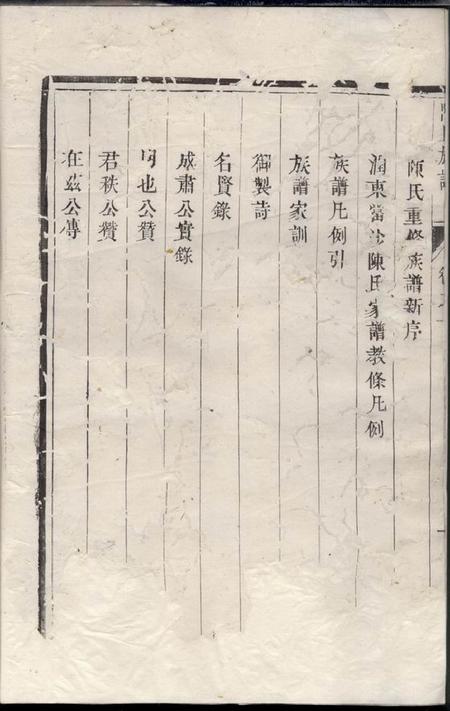 陳氏重修族譜新序
潤東當沙陳氏家譜教條凡例
族譜凡例引
族譜家訓
御製詩
名賢錄
成肅公實錄
也公贊
君秩公贊
在茲公傳